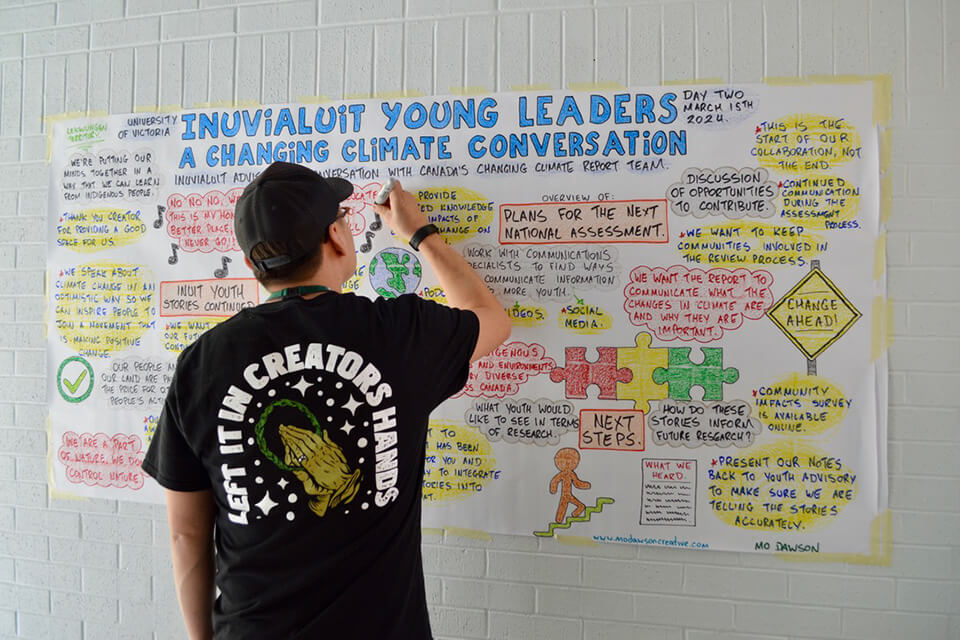 LEKWUNGEN
TERRITORY.
UNIVERSITY
OF VICTORIA
INUVIALUIT YOUNG LEADERS
A CHANGING CLIMATE CONVERSATION
DAY TWO
MARCH 15TH
2024.
CONVERSATION WITH CANADA'S CHANGING CLIMATE REPORT TEAM.
WE'RE PUTTING OUR
MINDS TOGETHER IN A
WAY THAT WE CAN LEARN
FROM INDIGENOUS PEOPLE.
*THANK YOU CREATOR
FOR PROVIDING A GOOD
SPACE FOR US.
*WE SPEAK ABOUT
CLIMATE CHANGE IN AN
OPTIMISTIC WAY SO WE
CAN INSPIRE PEOPLE TO
JOIN A MOVEMENT THAT
IS MAKING POSITIVE
CHANGE.
OUR PEOPLE AND
OUR LAND ARE
THE PRICE FOR
PEOPLE'S
WE ARE A PART
OF NATURE. WE DON'T
CONTROL NATURE.
NO NO NO,
THIS IS MY
BETTER PLACE
NEVER GO!
INUIT YOUTH
STORIES CONTINUED
*WE WANT
OUR
PROVIDE
KNOWLEDGE
IMPACTS OF
CHANGE ON
OVERVIEW OF:
PLANS FOR THE NEXT
NATIONAL ASSESSMENT.
WORK WITH COMMUNICATIONS
SPECIALISTS TO FIND WAYS
COMMUNICATE INFORMATION
MORE YOUTH.
VIDEOS.
*SOCIAL
MEDIA.
INDIGENOUS
AND ENVIRONMENTS
VERY DIVERSE
ACROSS CANADA.
WHAT YOUTH WOULD
LIKE TO SEE IN TERMS
OF RESEARCH.
NEXT
STEPS.
HOW DO THESE
STORIES INFORM
FUTURE RESEARCH?
TO
HAS BEEN
FOR YOU AND
WAY TO INTEGRATE
STORIES INTO
THAT.
WHAT WE
HEARD.
DISCUSSION
OF OPPORTUNITIES
TO CONTRIBUTE.
*THIS IS THE
START OF OUR
COLLABORATION, NOT
THE END.
*CONTINUED
COMMUNICATION
DURING THE
ASSESSMENT
PROCESS.
*WE WANT TO KEEP
COMMUNITIES INVOLVED IN
THE REVIEW PROCESS.
WE WANT THE REPORT TO
COMMUNICATE WHAT THE
CHANGES IN CLIMATE ARE
(AND WHY THEY ARE
IMPORTANT.)
CHANGE
AHEAD!
*COMMUNITY
IMPACTS SURVEY
IS AVAILABLE
ONLINE.
*PRESENT OUR NOTES
BACK TO YOUTH ADVISORY
TO MAKE SURE WE ARE
TELLING THE STORIES
ACCURATELY.
www.modawsoncreative.com
MO DAWSON
LEFT IT IN CREATORS HANDS